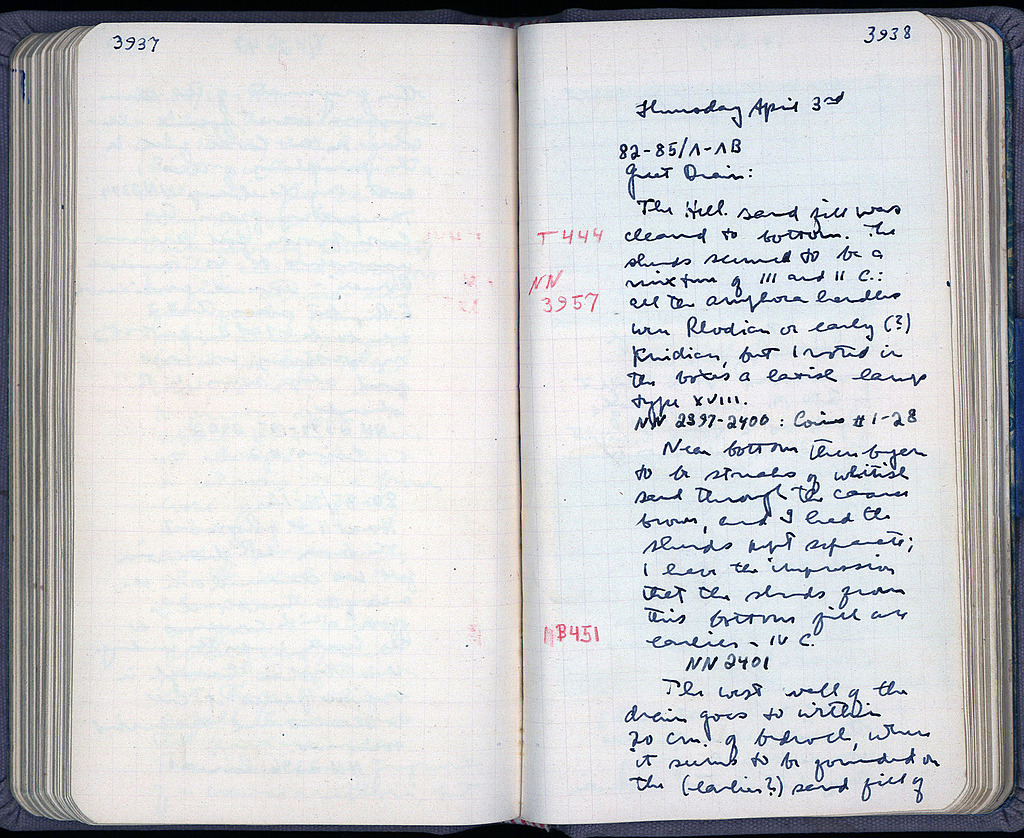 3937
3938
Thursday April 3rd
82-85/Λ-ΛB
Great Drain:
The Hell. sand fill was
T 444 cleared to bottom. The
sherds seemed to be a
NN mixture of III and II C.:
3957 all the amphora handles
were Rhodian or early (?)
Knidian, but I noted in
the boxes a lamp
type XVIII.
NN 2397-2400: Coins # 1-28
Near bottom there began
to be streaks of whitish
sand through the coarse
brown, and I had the
sherds kept separate;
I have the impression
that the sherds from
this bottom fill are
B451 earlier - IV C.
NN 2401
The west wall of the
drain goes to within
20 cm. of bedrock, where
it seems to be founded on
the (earlier?) sand fill of